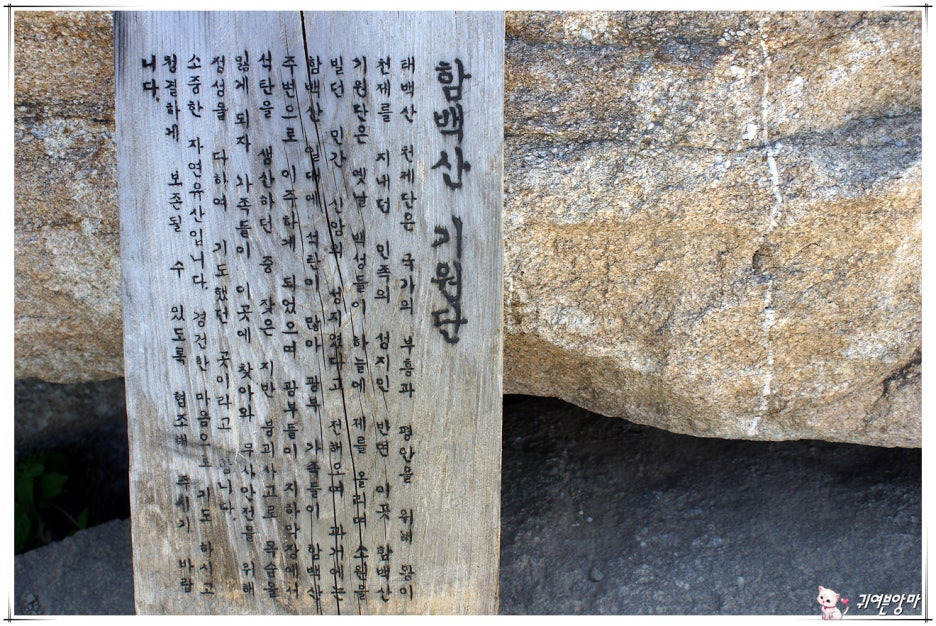 함백산 기원단
태백산 천제단은 국가의 부흥과 평안을 위해 왕이
천제를 지내던 민족의 성지인 반면 이곳 함백산
기원단은 옛날 백성들이 하늘에 제를 올리며 소원을
빌던 민간 신앙의 성지였다고 전해오며 과거에는
함백산 일대에 석탄이 많아 광부 가족들이 함백산
주변으로 이주하게 되었으며 광부들이 지하막장에서
석탄을 생산하던 중 잦은 지반 붕괴사고로 목숨을
잃게 되자 가족들이 이곳에 찾아와 무사안전을 위해
정성을 다하여 기도했던 곳이라고 합니다.
소중한 자연유산입니다. 경건한 마음으로 기도 하시고
청결하게 보존될 수 있도록 협조해 주시기 바랍
니다.
귀여븐앙마